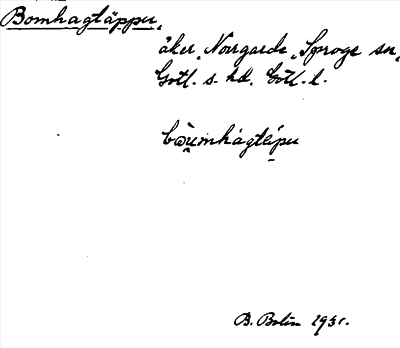 Bomhagtäppu,
åker, Norrgarda, Sproge sn,
Gotl. s. hd. Gotl. l.
B. Bolin 1931.